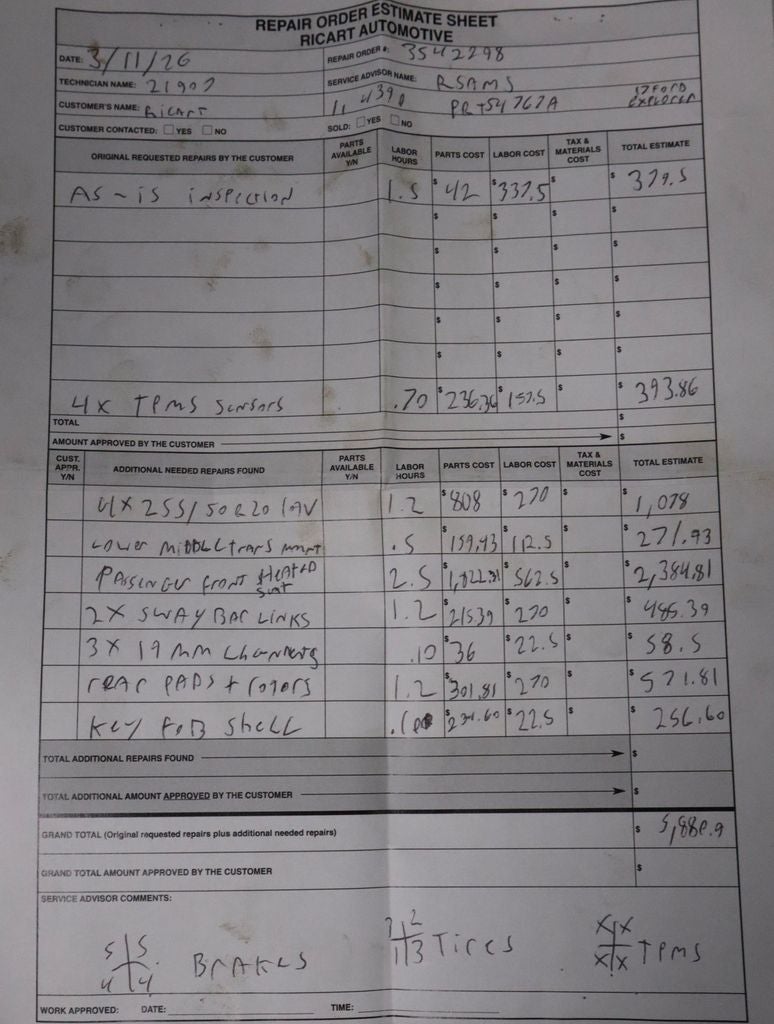 REPAIR ORDER ESTIMATE SHEET
RICART AUTOMOTIVE
DATE: 3/11/26 REPAIR ORDER #: 3542298
TECHNICIAN NAME: 21907 SERVICE ADVISOR NAME: RSAMS
CUSTOMER'S NAME: Ricart 114390 PRT54767A 17 FORD EXPLORER
CUSTOMER CONTACTED: ☐ YES ☐ NO SOLD: ☐ YES ☐ NO
ORIGINAL REQUESTED REPAIRS BY THE CUSTOMER PARTS AVAILABLE Y/N LABOR HOURS PARTS COST LABOR COST TAX & MATERIALS COST TOTAL ESTIMATE
AS-iS inSPECtION 1.5 $42 $337.5 $ $379.5
$ $ $ $
$ $ $ $
$ $ $ $
$ $ $ $
$ $ $ $
4x TPMS Sensors .70 $236.36 $157.5 $ $393.86
TOTAL $
AMOUNT APPROVED BY THE CUSTOMER $
CUST. APPR. Y/N ADDITIONAL NEEDED REPAIRS FOUND PARTS AVAILABLE Y/N LABOR HOURS PARTS COST LABOR COST TAX & MATERIALS COST TOTAL ESTIMATE
4x 255/50R20 1.2 $808 $270 $ $1,078
LOWER MIDDLE trans mount .5 $159.43 $112.5 $ $271.93
PASSENGER FRONT HEATED Seat 2.5 $1,822.31 $562.5 $ $2,384.81
2X SWAY BAR LINKS 1.2 $215.39 $270 $ $485.39
3X 19mm .10 $36 $22.5 $ $58.5
rear PADS + rotors 1.2 $301.81 $270 $ $571.81
KEY FOB SHELL $234.60 $22.5 $ $256.60
TOTAL ADDITIONAL REPAIRS FOUND $
TOTAL ADDITIONAL AMOUNT APPROVED BY THE CUSTOMER $
GRAND TOTAL (Original requested repairs plus additional needed repairs) $5,880.9
GRAND TOTAL AMOUNT APPROVED BY THE CUSTOMER $
SERVICE ADVISOR COMMENTS:
5 5 7 2 X X
4 4 BRAKES 1 3 Tires X X TPMS
WORK APPROVED: DATE: TIME: